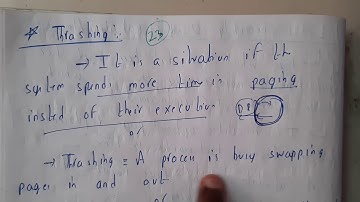 * Thrashing :-
23
→ It is a situation if th
system spends more time in paging
insted of their execution
or
→ Thrashing = A process is busy swapping
pages in and out
or